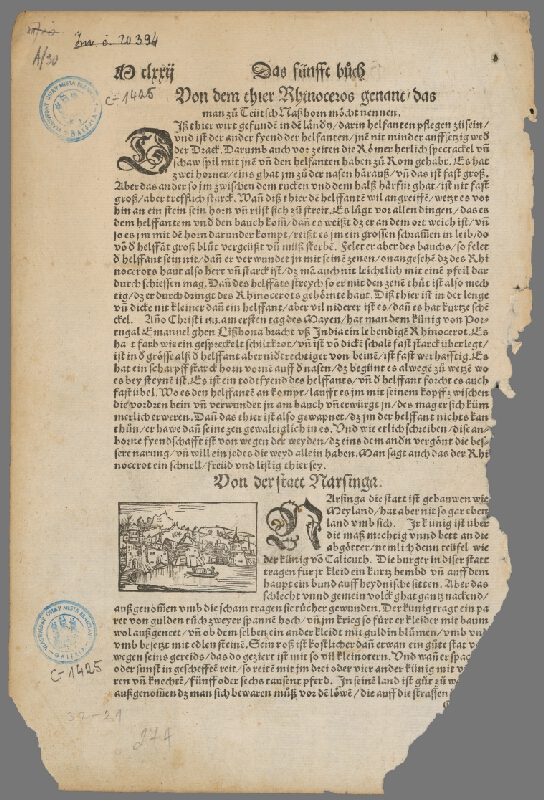 Inv. č. 20394
A/30
C-1425
Das fünffte bůch
Von dem thier Rhinoceros genant/das
man zů Teutsch Naßhorn möcht nennen.
DIß thier wirt gefundē in dē lāndn/darin helfanten pflegen zů sein/
vnd ist der ander fyend der helfanten/
der Drack. Darumb auch vor zeiten die Römer herlich spectackel vñ
schaw spil mit jnē vñ den helfanten haben zů Rom gehabt. Es hat
zwei hörner/eins ghat jm zů der nasen härauß/vñ das ist fast groß.
Aber das ander so jm zwischen dem rucken vnd dem halß härfür ghat/ist nit fast
groß/aber trefflich starck. Wañ diß thier dē helffantē wil angreiffē/wetzt es vor
hin an ein stein sein horn vñ rüst sich zů streit. Es lůgt vor allen dingen/das es
dem helffantem vnd den bauch kom/dañ es weißt dz er an dem ort weich ist/vñ
so es jm mit dē horn darunder kompt/reißt es jm ein grossen schrammen in leib/do
võ ð helffāt groß blůt vergeüßt vñ můß sterbē. Felet er aber des bauchs/so felet
ð helffant sein nit/dañ er verwundet jn mit seinē zenen/onangesehē dz des Rhi
nocerots haut also herr vñ starck ist/dz mā auch nit leichtlich mit einē pfeil dar
durch schiessen mag. Dañ des helffāts streych so er mit den zenē thůt ist also mech
tig/dz er durchdringt des Rhinocerots gehörnte haut. Diß thier ist in der lenge
vñ dicke nit kleiner dañ ein helffant/aber vil niderer ist es/dañ es hat kurtze sche
ckel. Año Christi 1513.am ersten tag des Mayen/hat man dem künig von Por-
tugal Emanuel ghen Lißbona bracht vß India ein lebendigē Rhinocerot. Es
hat farb wie ein gespreckelt schiltkrot/vñ ist võ dickē schalē fast starck überlegt/
ist in ð grösse alß ð helffant aber nidtrechtiger von beinē/ist fast werhafftig. Es
hat ein scharpff starck horn vorne auff ð nasen/dz begünt es alwegē zů wetzē wo
es bey steynē ist. Es ist ein todtfyend des helffants/vñ ð helffant förcht es auch
fast übel. Wo es den helffantē an kompt/laufft es jm mit seinem kopff zwischen
die vordren bein vñ verwundet jn am bauch vñ erwürgt jn/des mag er sich küm
merlich erweren. Dañ das thier ist also gewapnet/dz jm der helffant nichts kan
thůn/er hawe dañ seine zen gewaltiglich in es. Vnd wie etlich schreiben/dise an-
borne fyendschafft ist von wegen der weyden/dz eins dem andn vergönt die bes-
sere narung/vñ will ein jedes die weyd allein haben. Man sagt auch das der Rhi
nocerot ein schnell/freüd vnd listig thier sey.
Von der statt Narsinga.
NArsinga die statt ist gebauwen wie
Meyland/hat aber nit so gar eben
land vmb sich. Jr künig ist über
die maß mechtig vnnd bett an die
abgötter/nemlich den teüfel wie
der künig võ Calicuth. Die burger in diser statt
tragen für jr kleid ein kurtz hembd vñ auff dem
haupt ein bund auff heydnische sitten. Aber das
schlecht vnnd gemein volck ghat gantz nackend/
außgenommen vmb die scham tragen sie tücher gewunden. Der künig tregt ein pa
ret von gulden tůch zweyer spannē hoch/vñ jm krieg so fürt er kleider mit baum
wol außgeneet/vñ ob dem selben ein ander kleidt mit guldin blůmen/vmb vnd
vmb besetzt mit edlen steinē. Sein roß ist köstlicher dañ etwan ein gůte stat võ
wegen seins gereids/das do geziert ist mit so vil kleinotern. Vnd wañ er spac
oder sunst in gescheffte reit/so reitē mit jm drei oder vier ander künig mit
ren vñ knechtē/fünff oder sechs tausent pferd. Jn seinē land ist gůt zů w
außgenommen dz man sich bewaren můß vor dē löwē/die auff die strassen
C-1425
274